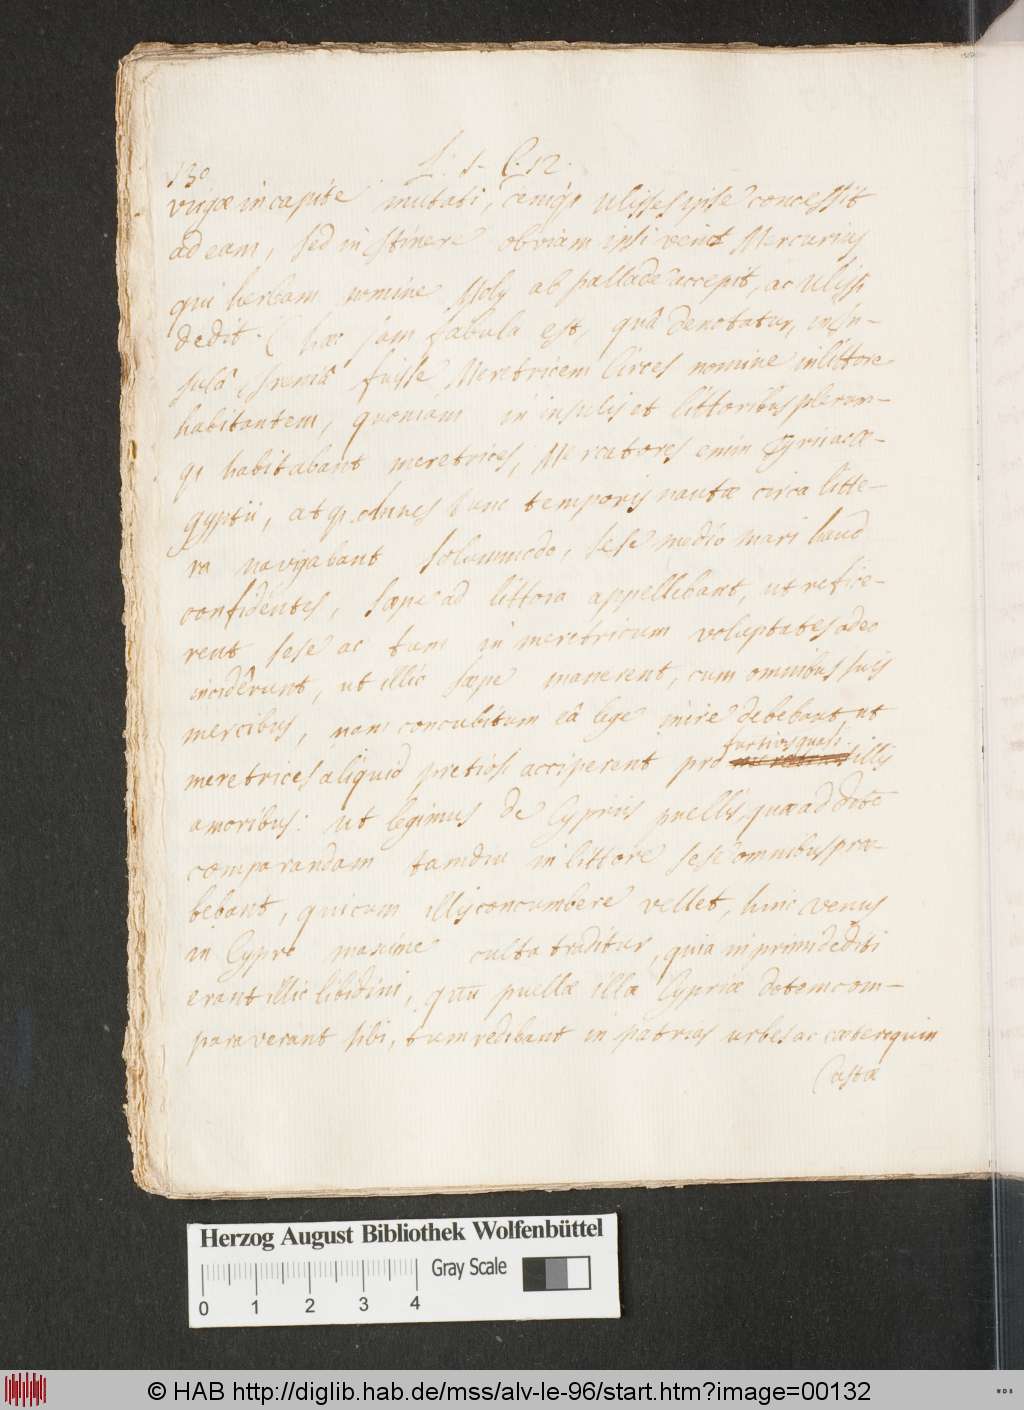 130
L. 1. C. 12.
virgæ in capite mutati, deniq; Ulisses ipse concessit
ad eam, sed in itinere obviam ipsi venit Mercurius
qui herbam nomine Moly ab pallade accepit, ac Ulissi
dedit. (hæc jam fabula est, quâ denotatur, in In-
sulâ fuisse Meretricem Circes nomine in littore
habitantem, quoniam in insulis et littoribus plerum-
q; habitabant meretrices, Mercatores enim Tyrii ac Æ-
gyptii, atq; omnes tunc temporis nautæ circa litto-
ra navigabant solummodo, sese medio mari haud
confidentes, sæpe ad littora appellebant, ut refice-
rent sese ac tum in meretricum voluptates adeo
incidêrunt, ut illic sæpe manerent, cum omnibus suis
mercibus, nam concubitum eâ lege inire debebant, ut
meretrices aliquid pretiosi acciperent pro furtivis quasi illis
amoribus: ut legimus de Cypriis puellis, quæ ad dotē
comparandam tamdiu in littore sese omnibus præ-
bebant, quicum illis concumbere vellet, hinc Venus
in Cypro maxime culta traditur, quia in primi dediti
erant illic libidini, quū puellæ illæ Cypriæ dotem com-
paraverant sibi, tum redibant in patrias urbes ac cæteroquin
Castæ
Herzog August Bibliothek Wolfenbüttel
Gray Scale
0 1 2 3 4
© HAB http://diglib.hab.de/mss/alv-le-96/start.htm?image=00132